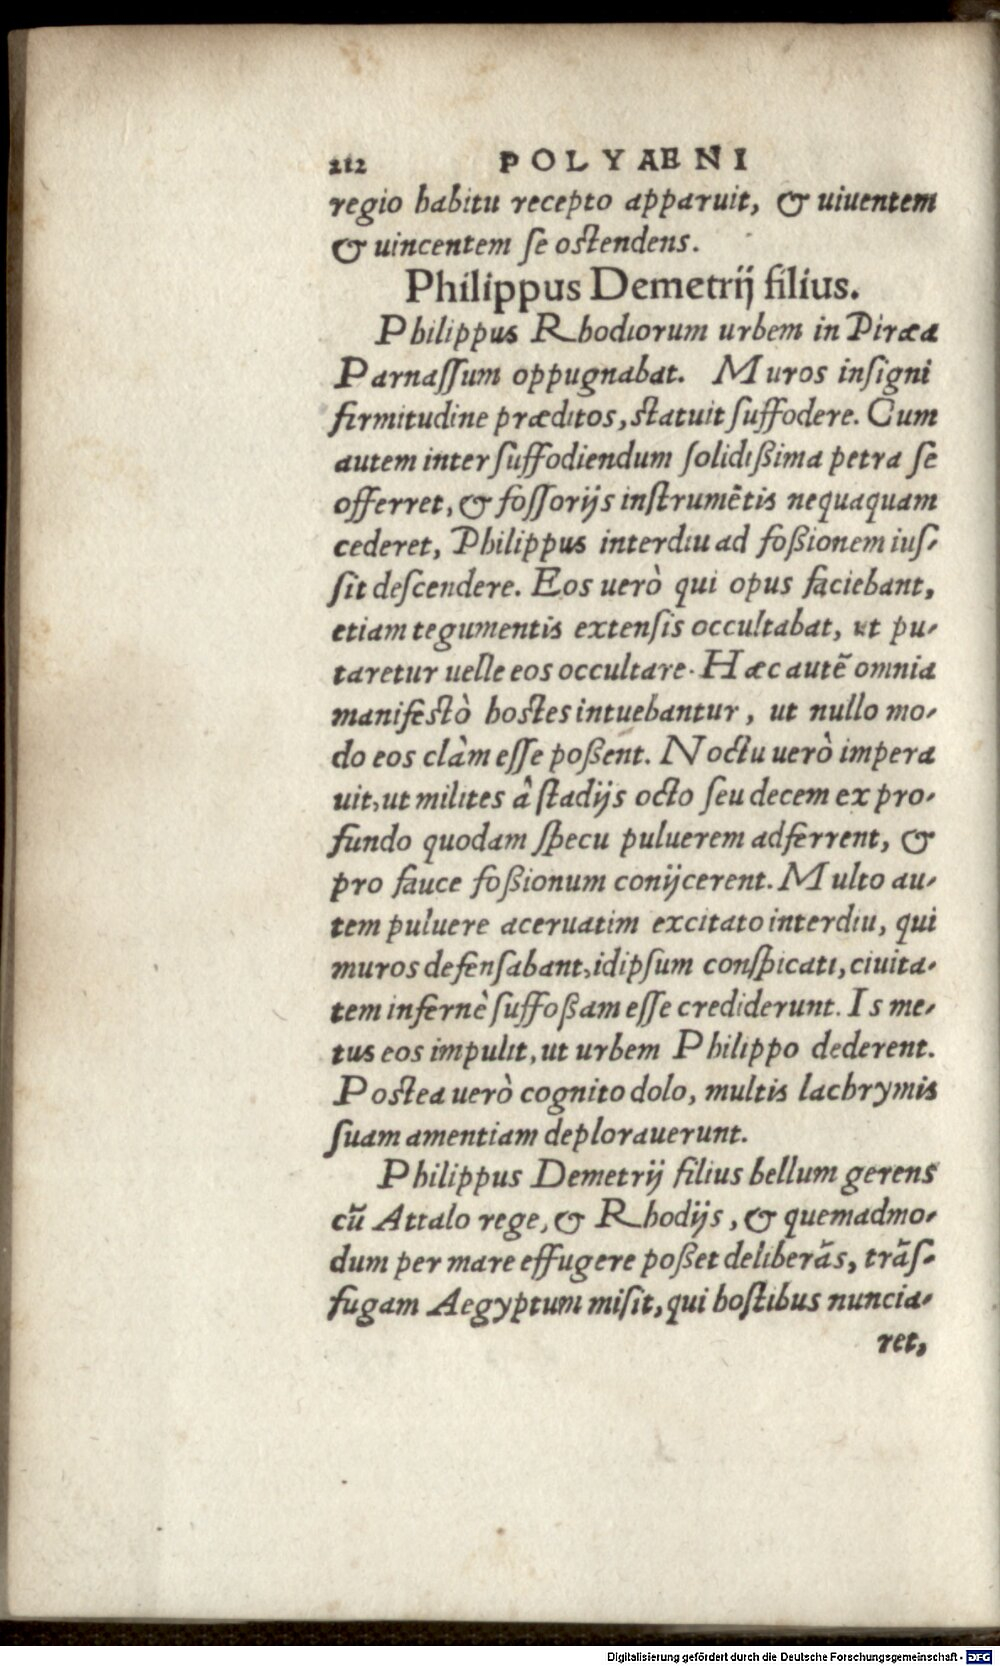 212 POLYAENI
regio habitu recepto apparuit, & uiuentem
& uincentem se ostendens.
Philippus Demetrij filius.
Philippus Rhodiorum urbem in Piræa
Parnassum oppugnabat. Muros insigni
firmitudine præditos, statuit suffodere. Cum
autem inter suffodiendum solidißima petra se
offerret, & fossorijs instrumētis nequaquam
cederet, Philippus interdiu ad foßionem ius-
sit descendere. Eos uerò qui opus faciebant,
etiam tegumentis extensis occultabat, ut pu-
taretur uelle eos occultare. Hæc autē omnia
manifestò hostes intuebantur, ut nullo mo-
do eos clàm esse poßent. Noctu uerò impera
uit, ut milites â stadijs octo seu decem ex pro-
fundo quodam specu puluerem adferrent, &
pro fauce foßionum conijcerent. Multo au-
tem puluere aceruatim excitato interdiu, qui
muros defensabant, idipsum conspicati, ciuita-
tem infernè suffoßam esse crediderunt. Is me-
tus eos impulit, ut urbem Philippo dederent.
Postea uerò cognito dolo, multis lachrymis
suam amentiam deplorauerunt.
Philippus Demetrij filius bellum gerens
cū Attalo rege, & Rhodijs, & quemadmo-
dum per mare effugere poßet deliberās, trās-
fugam Aegyptum misit, qui hostibus nuncia-
ret,
Digitalisierung gefördert durch die Deutsche Forschungsgemeinschaft - DFG